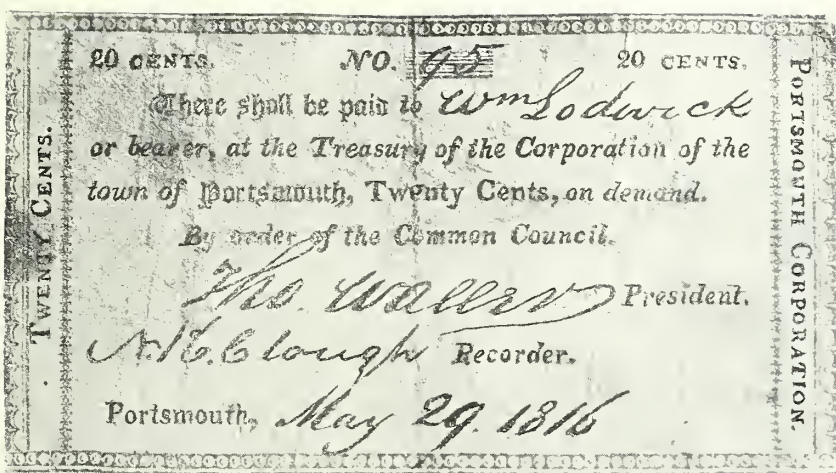 20 CENTS. NO. 95 20 CENTS.
There shall be paid to Wm Lodwick
or bearer, at the Treasury of the Corporation of the
town of Portsmouth, Twenty Cents, on demand.
By order of the Common Council.
Tho. Waller President.
N. K. Clough Recorder.
Portsmouth, May 29. 1816
TWENTY CENTS.
PORTSMOUTH CORPORATION.